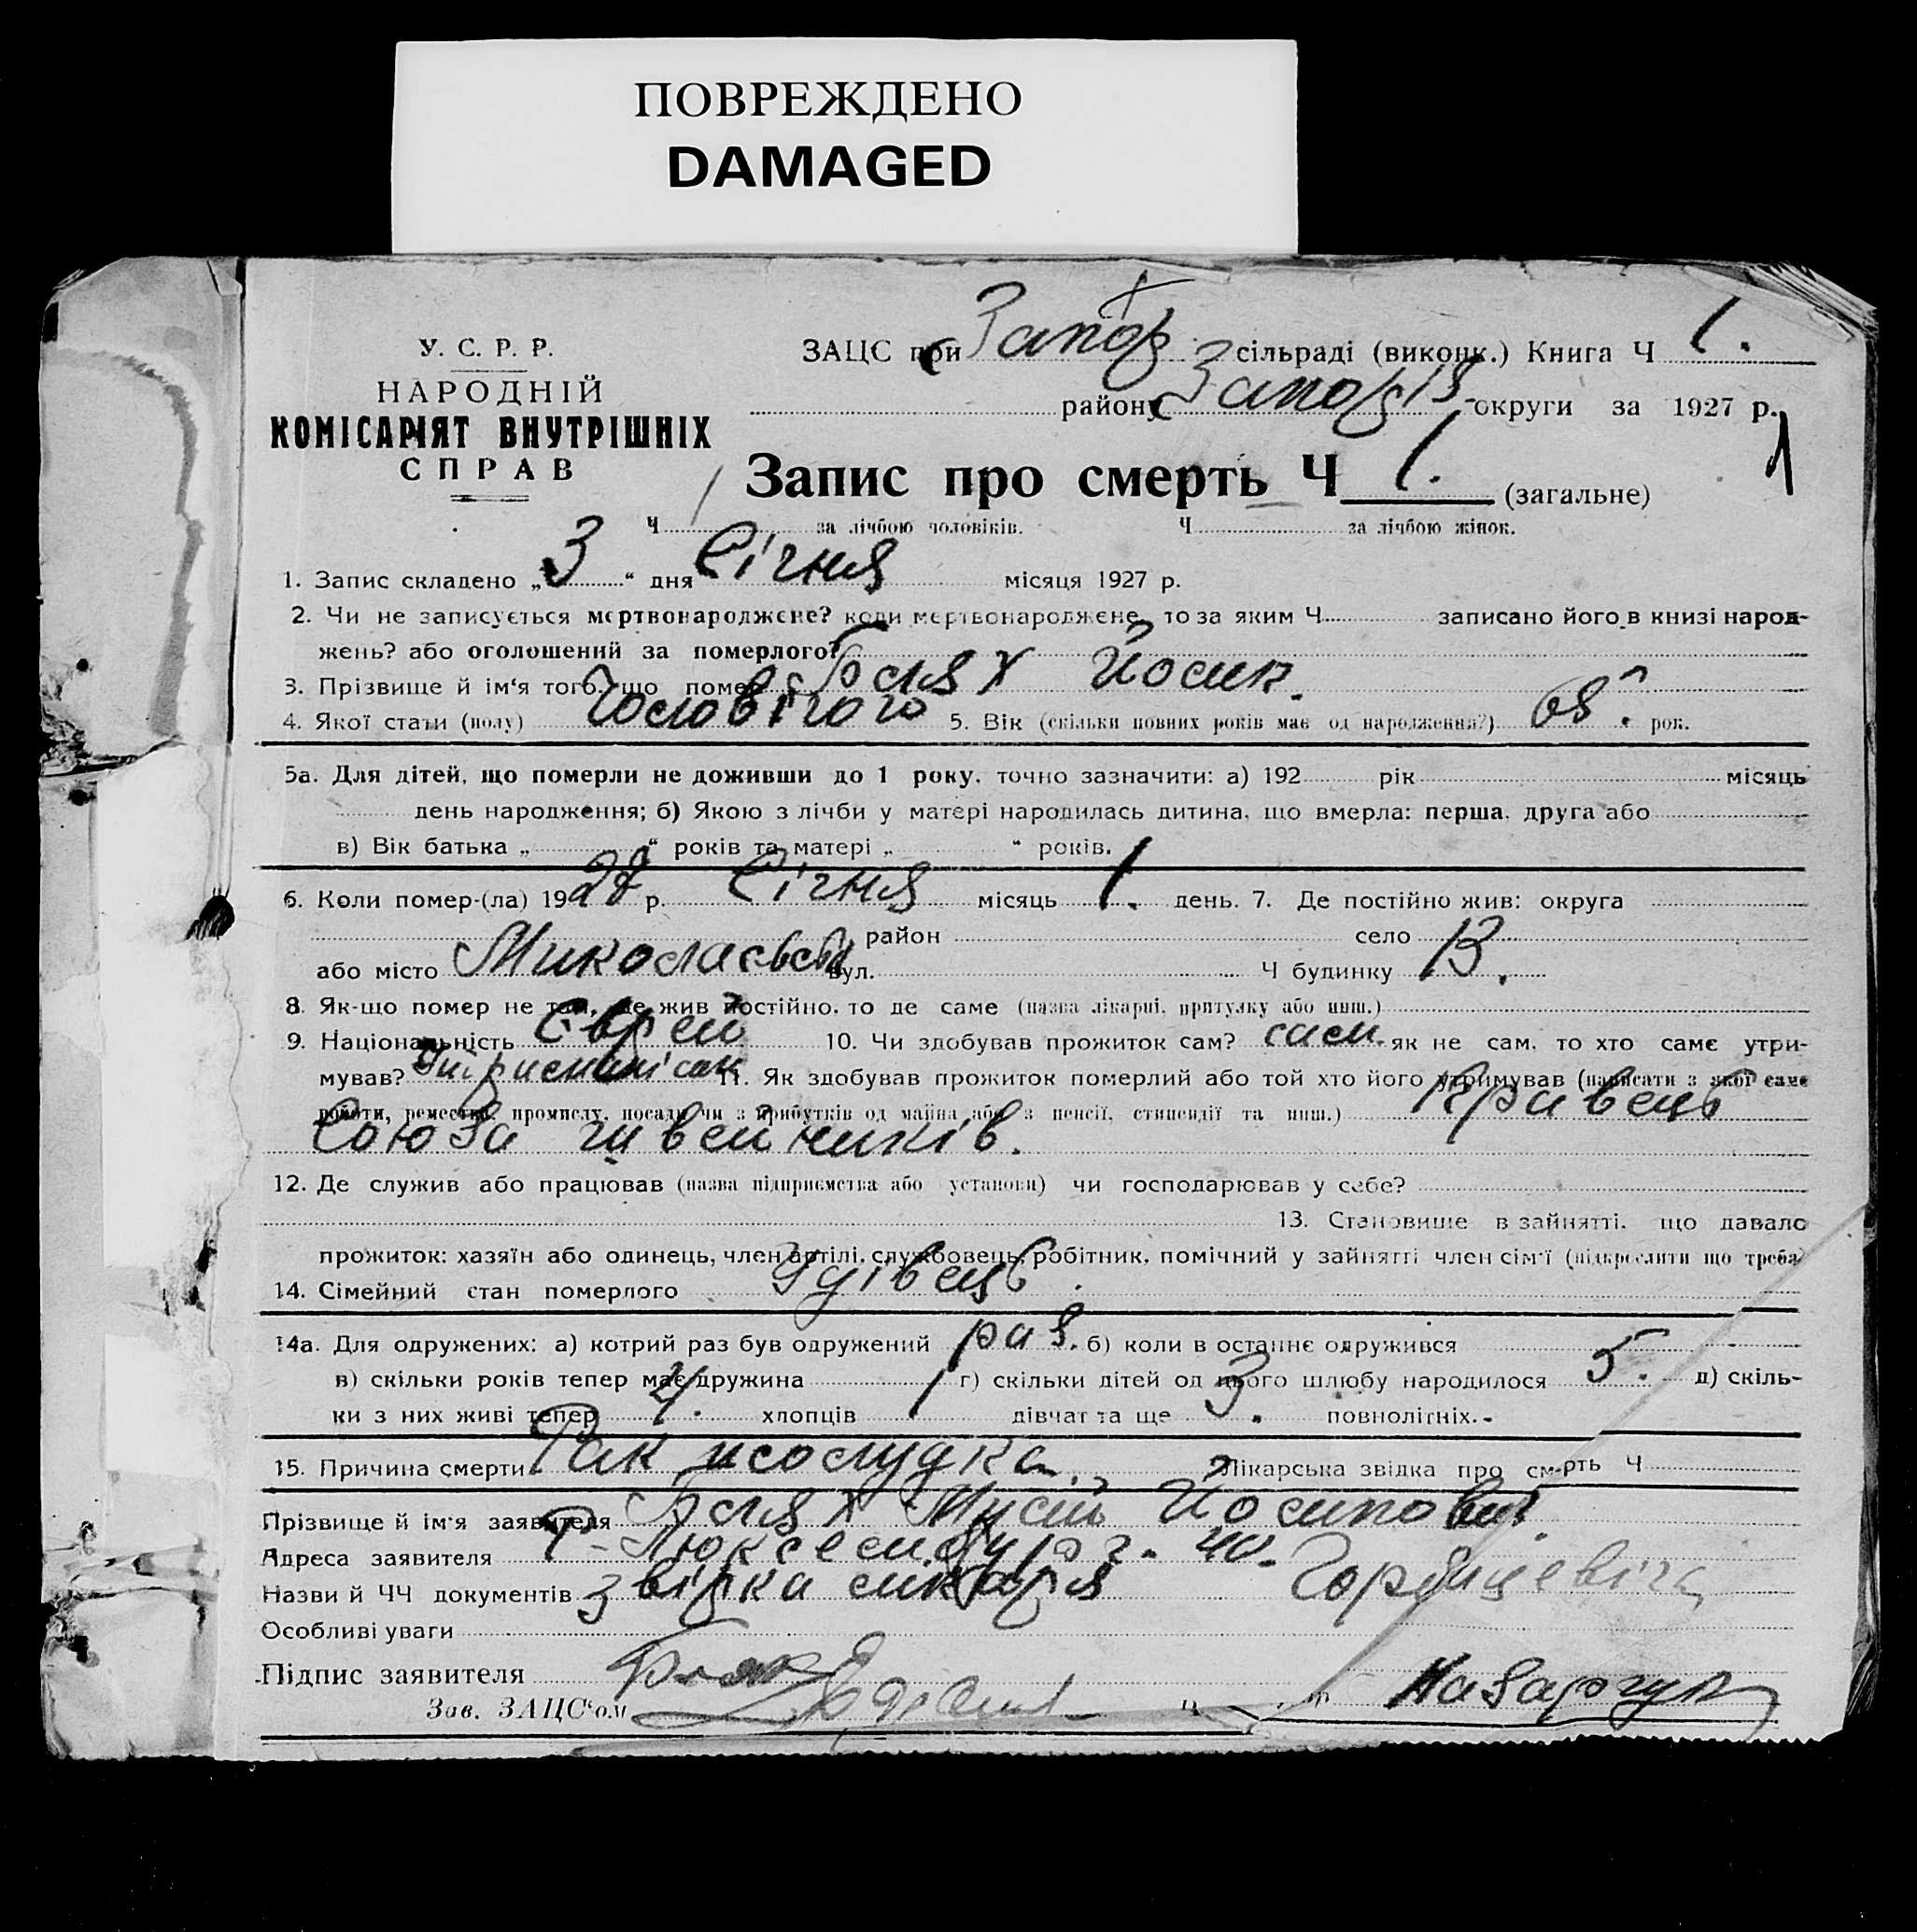 ПОВРЕЖДЕНО
DAMAGED
У. С. Р. Р.
НАРОДНІЙ
КОМІСАРІЯТ ВНУТРІШНІХ
СПРАВ
ЗАЦС при Запор сільраді (виконк.) Книга Ч 1.
району Запоріз округи за 1927 р.
1
Запис про смерть Ч 1. (загальне)
Ч 1 за лічбою чоловіків. Ч за лічбою жінок.
1. Запис складено „3“ дня Січня місяця 1927 р.
2. Чи не записується мертвонароджене? коли мертвонароджене, то за яким Ч записано його в книзі народ-
жень? або оголошений за померлого?
3. Прізвище й ім'я того, що помер Блях Йосип.
4. Якої стати (полу) Чоловічого 5. Вік (скільки повних років має од народження?) 68. рок.
5а. Для дітей, що померли не доживши до 1 року, точно зазначити: а) 192 рік місяць
день народження; б) Якою з лічби у матері народилась дитина, що вмерла: перша, друга або
в) Вік батька „ “ років та матері „ “ років.
6. Коли помер-(ла) 1927 р. Січня місяць 1. день. 7. Де постійно жив: округа
район село
або місто Миколаєвська вул. Ч будинку 13.
8. Як-що помер не там, де жив постійно, то де саме (назва лікарні, притулку або инш.)
9. Національність Єврей 10. Чи здобував прожиток сам? сам. як не сам, то хто саме утри-
мував? 11. Як здобував прожиток померлий або той хто його утримував (написати з якої саме
роботи, ремества, промислу, посади чи з прибутків од майна або з пенсії, стипендії та инш.) Кравець
Союза швейників.
12. Де служив або працював (назва підприємства або установи) чи господарював у себе?
13. Становище в зайнятті, що давало
прожиток: хазяїн або одинець, член артілі, службовець, робітник, помічний у зайнятті член сім'ї (підкреслити що треба)
14. Сімейний стан померлого Удівець.
14а. Для одружених: а) котрий раз був одружений 1 раз. б) коли в останнє одружився
в) скільки років тепер має дружина г) скільки дітей од цього шлюбу народилося 5. д) скіль-
ки з них живі тепер 4. хлопців 1 дівчат та ще 3. повнолітніх.
15. Причина смерти Рак жолудка. Лікарська звідка про смерть Ч
Прізвище й ім'я заявителя Блях Мусій Йосипович.
Адреса заявителя Р-Люксембург. 40.
Назви й ЧЧ документів звідка лікаря
Особливі уваги
Підпис заявителя Блях
Зав. ЗАЦС'ом Назарчук